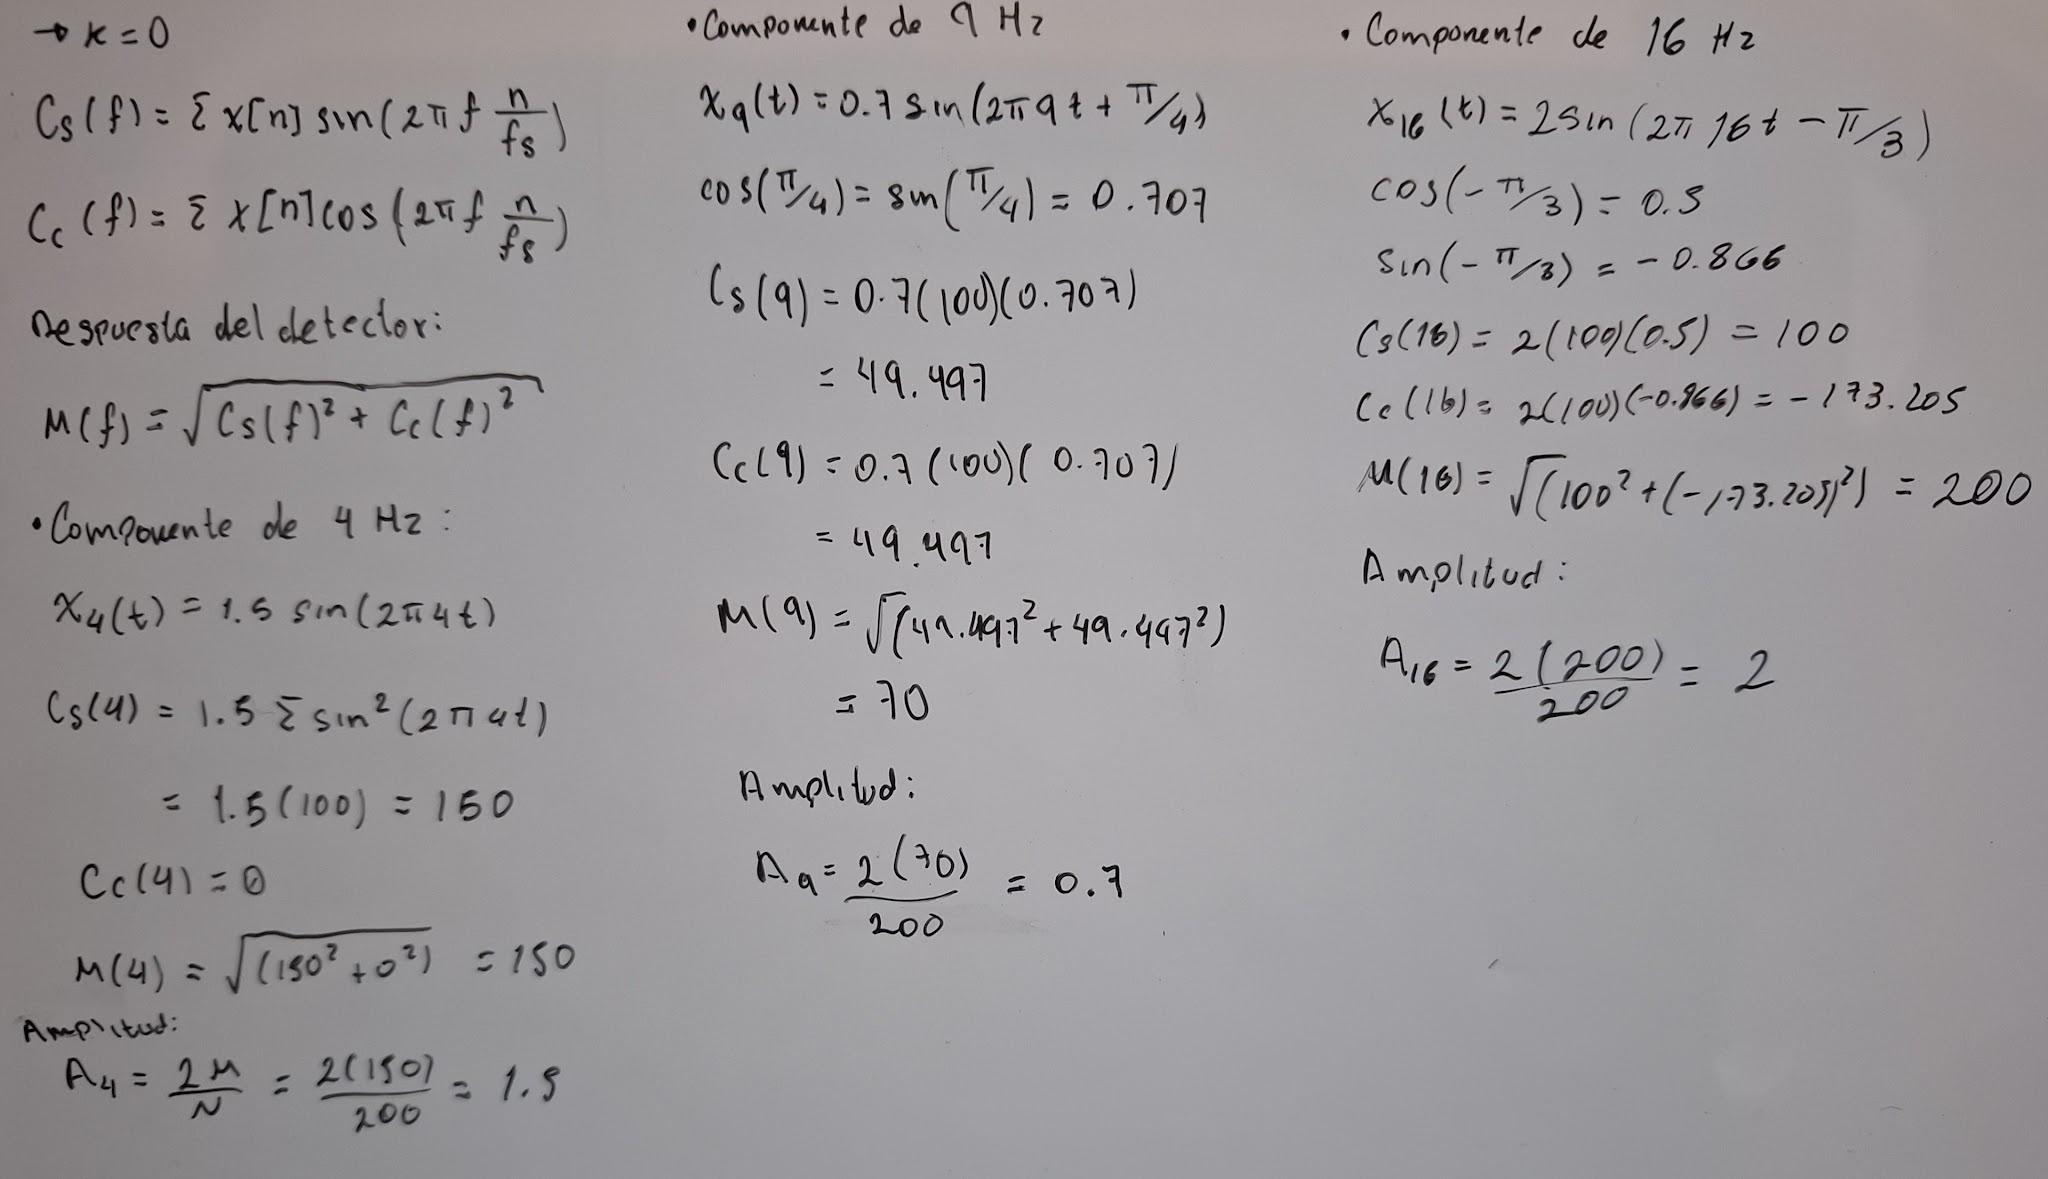 → k = 0
Cs(f) = Σ x[n] sin(2π f n/fs)
Cc(f) = Σ x[n] cos(2π f n/fs)
Respuesta del detector:
M(f) = √(Cs(f)² + Cc(f)²)
• Componente de 4 Hz:
x₄(t) = 1.5 sin(2π4t)
Cs(4) = 1.5 Σ sin²(2π4t)
= 1.5(100) = 150
Cc(4) = 0
M(4) = √(150² + 0²) = 150
Amplitud:
A₄ = 2M/N = 2(150)/200 = 1.5
• Componente de 9 Hz
x₉(t) = 0.7 sin(2π9t + π/4)
cos(π/4) = sin(π/4) = 0.707
Cs(9) = 0.7(100)(0.707)
= 49.497
Cc(9) = 0.7(100)(0.707)
= 49.497
M(9) = √(49.497² + 49.497²)
= 70
Amplitud:
A₉ = 2(70)/200 = 0.7
• Componente de 16 Hz
x₁₆(t) = 2sin(2π16t − π/3)
cos(−π/3) = 0.5
sin(−π/3) = −0.866
Cs(16) = 2(100)(0.5) = 100
Cc(16) = 2(100)(−0.866) = −173.205
M(16) = √(100² + (−173.205)²) = 200
Amplitud:
A₁₆ = 2(200)/200 = 2